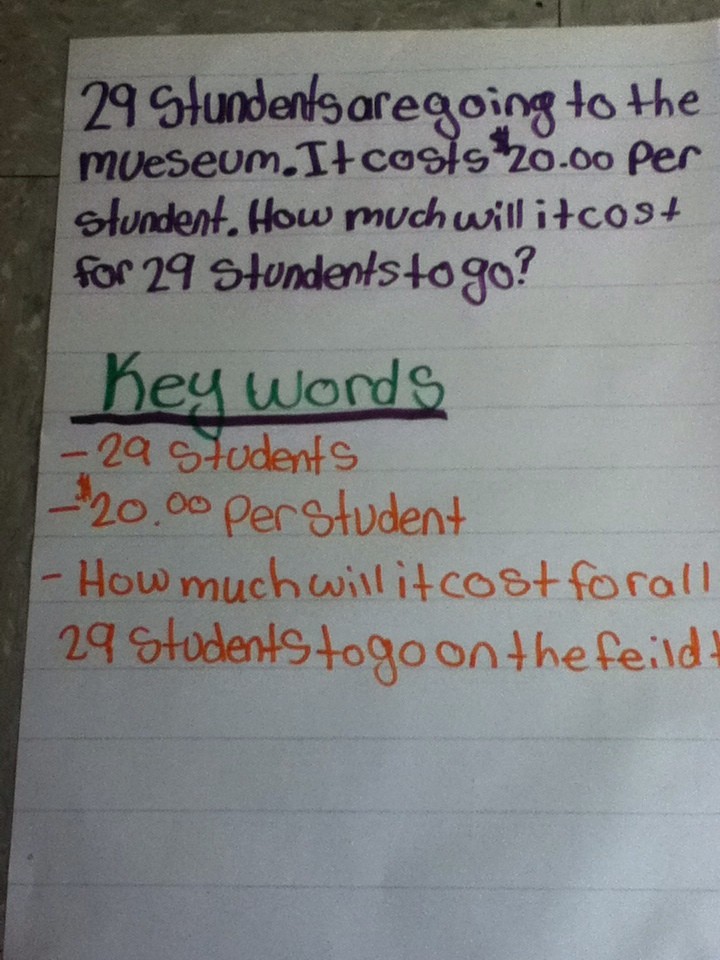 29 Stundents are going to the
mueseum. It costs $20.00 Per
stundent. How much will it cost
for 29 Stundents to go?
Key words
- 29 Students
- $20.00 Per Student
- How much will it cost for all
29 Students to go on the feild t